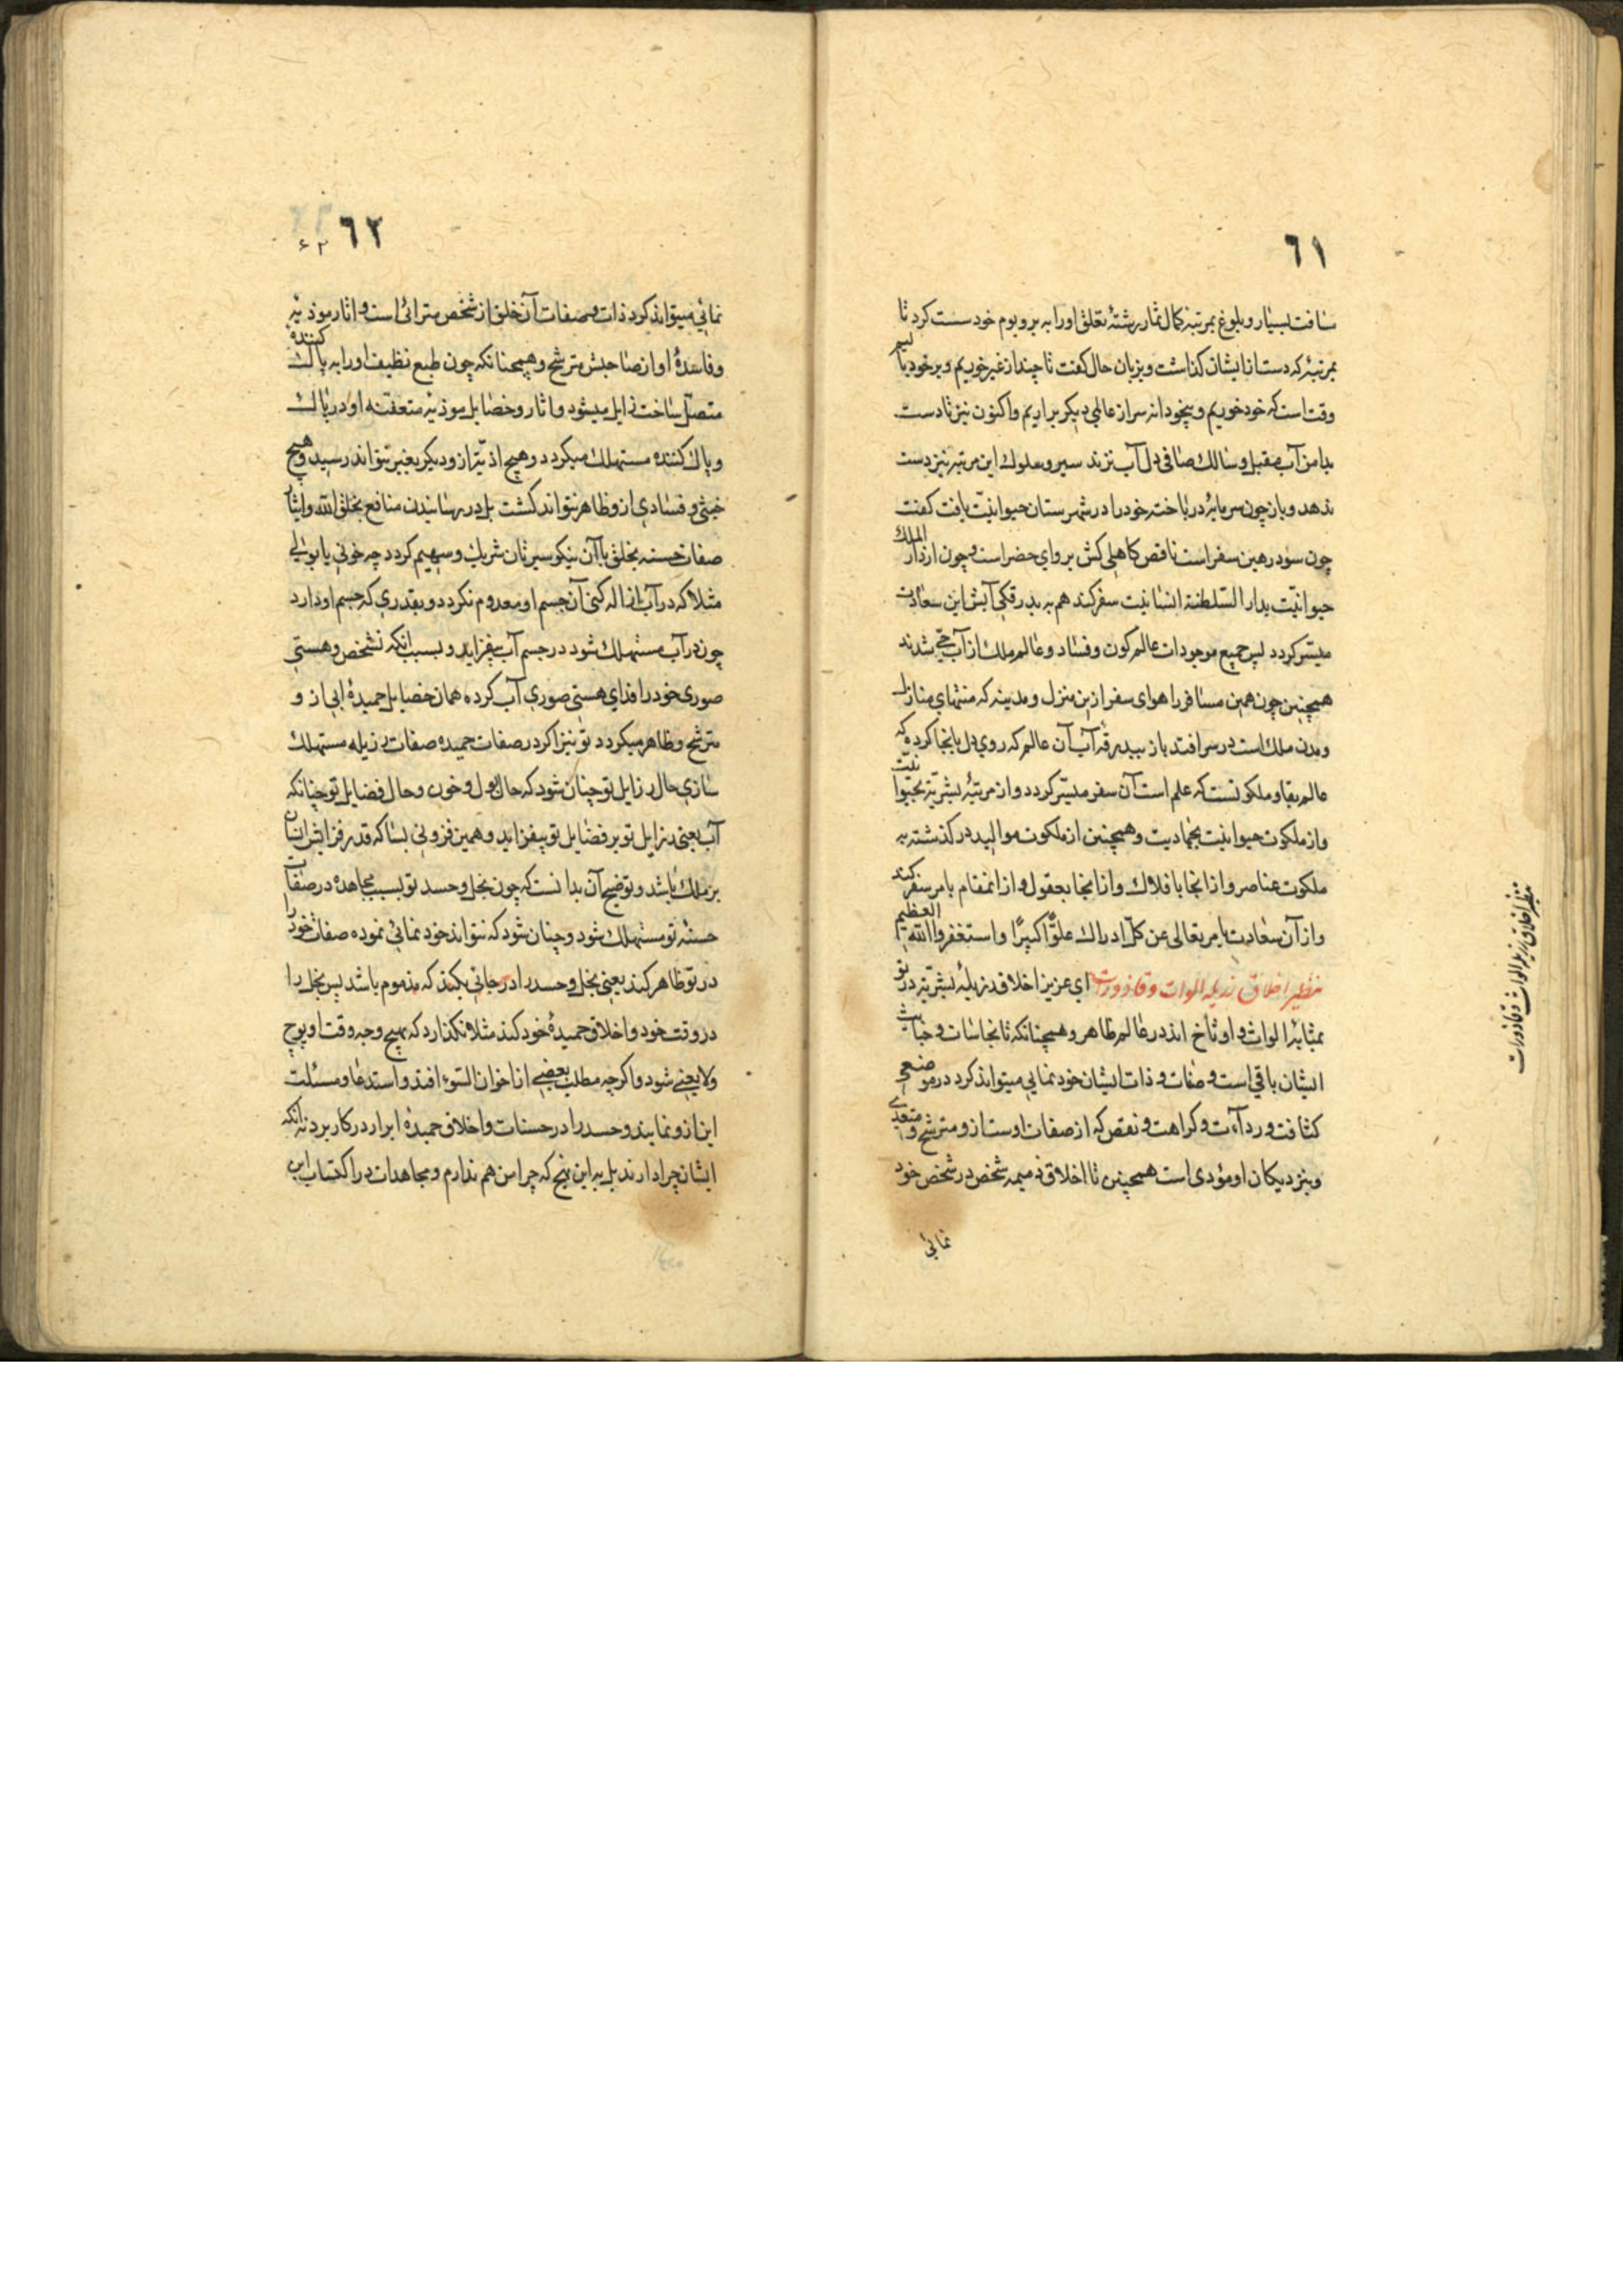 ٦١
مسافت بسیار و بلوغ بمرتبهٔ کمال ثمار رشتهٔ تعلق اورا به بر و بوم خود سست کرد تا
بمرتبهٔ که دست از ایشان کذاشت و بزبان حال کفت تا چند از غیر خوریم و بر خود بالیم
وقت است که خود خوریم و بیخودانه سر از عالمی دیکر براریم و اکنون نیز تا دست
بدامن آب مقبل و سالک صافی دل آب نزند سیر و سلوک این مرتبه نیز دست
ندهد و باز چون سرمایهٔ در باخته خود را در شهرستان حیوانیّت یافت کفت
چون سود در همین سفر است ناقص کاهلی کش پروای حضر است و چون از دار الملک
حیوانیّت بدار السّلطنة انسانیّت سفر کند هم به بدرقکی آبش این سعادت
میسّر کردد پس جمیع موجودات عالم کون و فساد و عالم ملک از آب حیّ شدند
همچنین چون همین مسافر را هوای سفر ازین منزل و مدینه که منتهای منازل
و مدن ملک است در سر افتد باز ببدرقه آب آن عالم که روی دل بانجا کرده که
عالم بقا و ملکوتست که علم است آن سفر میسّر کردد و از مرتبهٔ بشریّة بحیوانیّت
و از ملکوت حیوانیّت بجمادیت و همچنین از ملکوت موالید در کذشته به
ملکوت عناصر و از انجا بافلاک و از انجا بعقول و از انمقام بامر سفر کند
و از آن سعادت بامر تعالی عن کلّ ادراک علوًّا کبیرًا و استغفروا الله العظیم
نظیر اخلاق رذیله الواث و قاذورات ای عزیز اخلاق رذیلهٔ بشریّة در تو
بمثابهٔ الواث و اوساخ اند در عالم ظاهر و همچنانکه تا نجاسات و خباثت
ایشان باقی است و صفات و ذات ایشان خود نمایی میتواند کرد در موضعی
کثافت و ردآءت و کراهت و نقص که از صفات اوست ازو مترشح و متعدّی
و بنزدیکان او مؤدی است همچنین تا اخلاق ذمیمه شخص در شخص خود
نمائی
نظیر اخلاق رذیله الواث و قاذورات
٦٢
۶۲
نمائی میتواند کرد ذات و صفات آن خلق از شخص مترائی است و اثار موذیه
و فاسدهٔ او از صاحبش مترشح و همچنانکه چون طبع نظیف اورا به پاک کننده
متصل ساخت زایل میشود و اثار و خصایل موذیه متعفّنه او در پاک
و پاک کننده مستهلک میکردد و هیچ اذیّتی ازو دیکر بغیر نتواند رسید و هیچ
خبثی و فسادی ازو ظاهر نتواند کشت بل در رسانیدن منافع بخلق الله و ایثار
صفات حسنه بخلق با آن نیکو سیرتان شریک و سهیم کردد چه خونی یا بولی
مثلا که در آب ازاله کنی آن جسم او معدوم نکردد و بقدری که جسم او دارد
چون در آب مستهلک شود در جسم آب بیفزاید و بسبب انکه تشخص و هستی
صوری خود را فدای هستی صوری آب کرده همان خصایل حمیدهٔ ابی ازو
مترشح و ظاهر میکردد تو نیز اکر در صفات حمیده صفات رذیله مستهلک
سازی حال رذایل تو چنان شود که حال بول و خون و حال فضایل تو چنانکه
آب یعنی رذایل تو بر فضایل تو بیفزاید و همین فزونی بسا که قدر فزایش انسان
بر ملک باشد و توضیح آن بدانست که چون بخل و حسد تو بسبب مجاهده در صفات
حسنه تو مستهلک شود و چنان شود که نتواند خود نمائی نموده صفات خود را
در تو ظاهر کند یعنی بخل و حسد را در جائی بکند که مذموم باشد پس بخل را
در وقت خود و اخلاق حمیدهٔ خود کند مثلا نکذارد که بهیچ وجه وقت او پوچ
و لا یعنی شود و اکرچه مطلب بعضی از اخوان السّوء افتد و استدعا و مسئلت
این ازو نمایند و حسد را در حسنات و اخلاق حمیدهٔ ابرار در کار برد نه انکه
ایشان چرا دارند بل به این نهج که چرا من هم ندارم و مجاهدات در اکتساب این